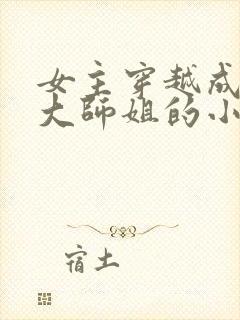 女主穿越成
大师姐的小
宿土